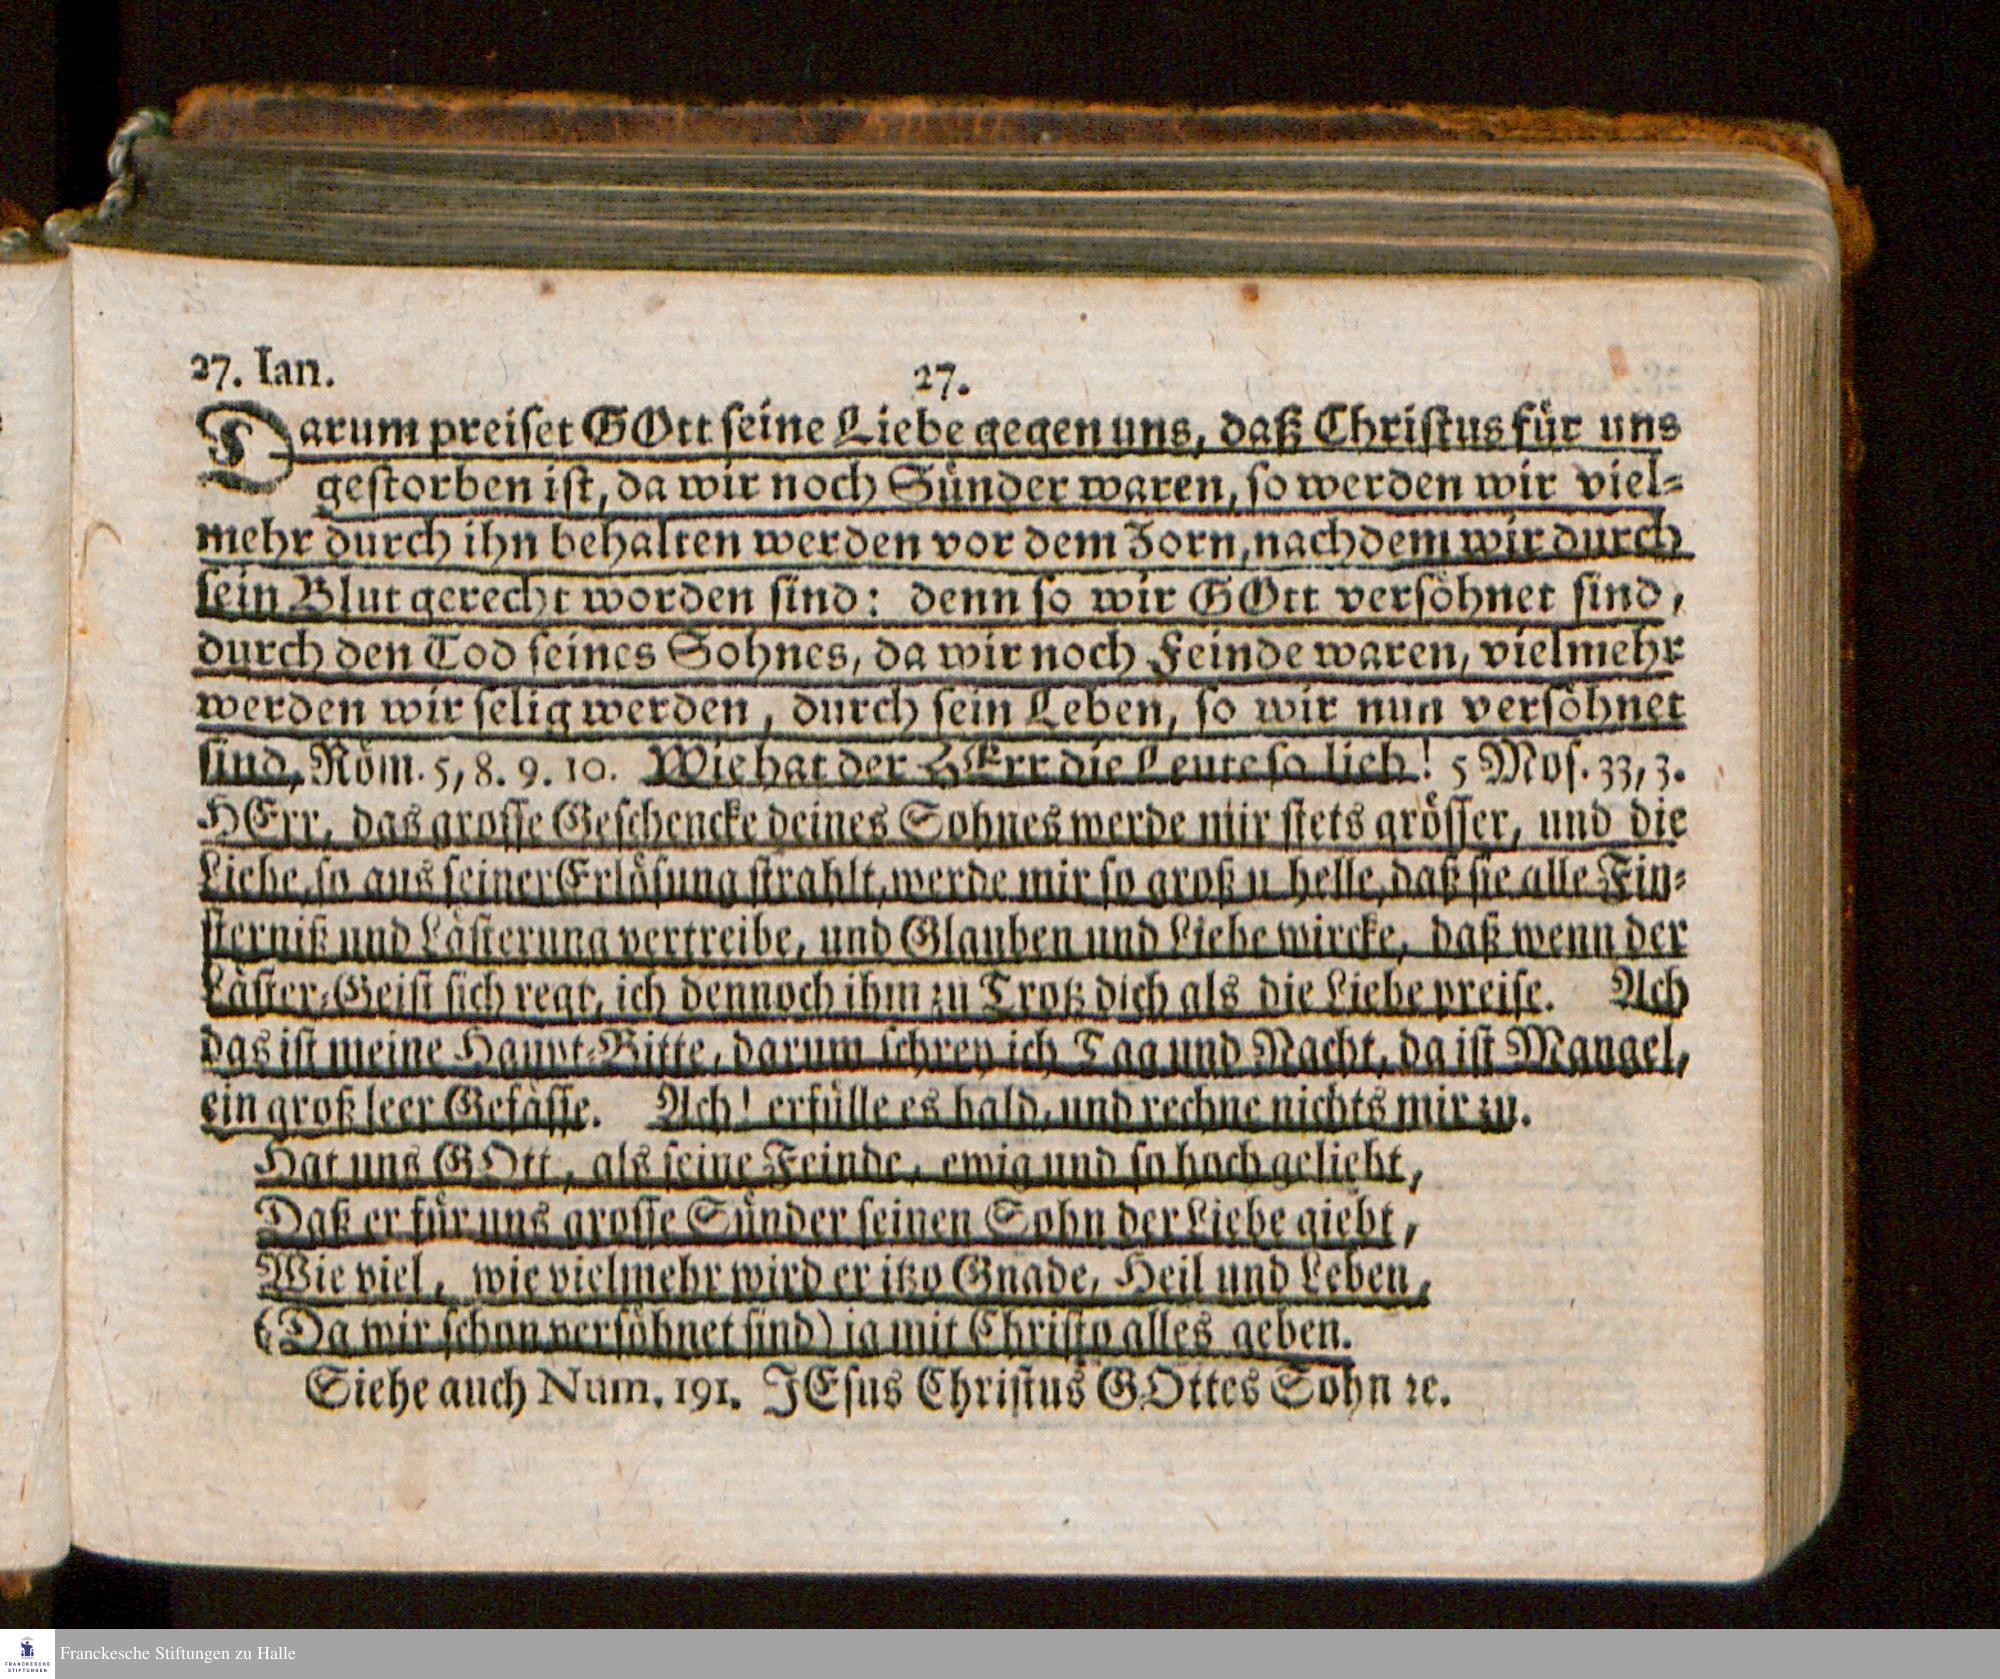 27. Ian.
27.
Darum preiset GOtt seine Liebe gegen uns, daß Christus für uns
gestorben ist, da wir noch Sünder waren, so werden wir viel-
mehr durch ihn behalten werden vor dem Zorn, nachdem wir durch
sein Blut gerecht worden sind: denn so wir GOtt versöhnet sind,
durch den Tod seines Sohnes, da wir noch Feinde waren, vielmehr
werden wir selig werden, durch sein Leben, so wir nun versöhnet
sind, Röm. 5, 8. 9. 10. Wie hat der HErr die Leute so lieb! 5 Mos. 33, 3.
HErr, das grosse Geschencke deines Sohnes werde mir stets grösser, und die
Liebe, so aus seiner Erlösung strahlt, werde mir so groß u helle, daß sie alle Fin-
sterniß und Lästerung vertreibe, und Glauben und Liebe wircke, daß wenn der
Läster-Geist sich regt, ich dennoch ihm zu Trotz dich als die Liebe preise. Ach
das ist meine Haupt-Bitte, darum schrey ich Tag und Nacht, da ist Mangel,
ein groß leer Gefässe. Ach! erfülle es bald, und rechne nichts mir zu.
Hat uns GOtt, als seine Feinde, ewig und so hoch geliebt,
Daß er für uns grosse Sünder seinen Sohn der Liebe giebt,
Wie viel, wie vielmehr wird er itzo Gnade, Heil und Leben,
(Da wir schon versöhnet sind) ja mit Christo alles geben.
Siehe auch Num. 191. JEsus Christus GOttes Sohn ꝛc.
FRANCKESCHE
STIFTUNGEN
Franckesche Stiftungen zu Halle